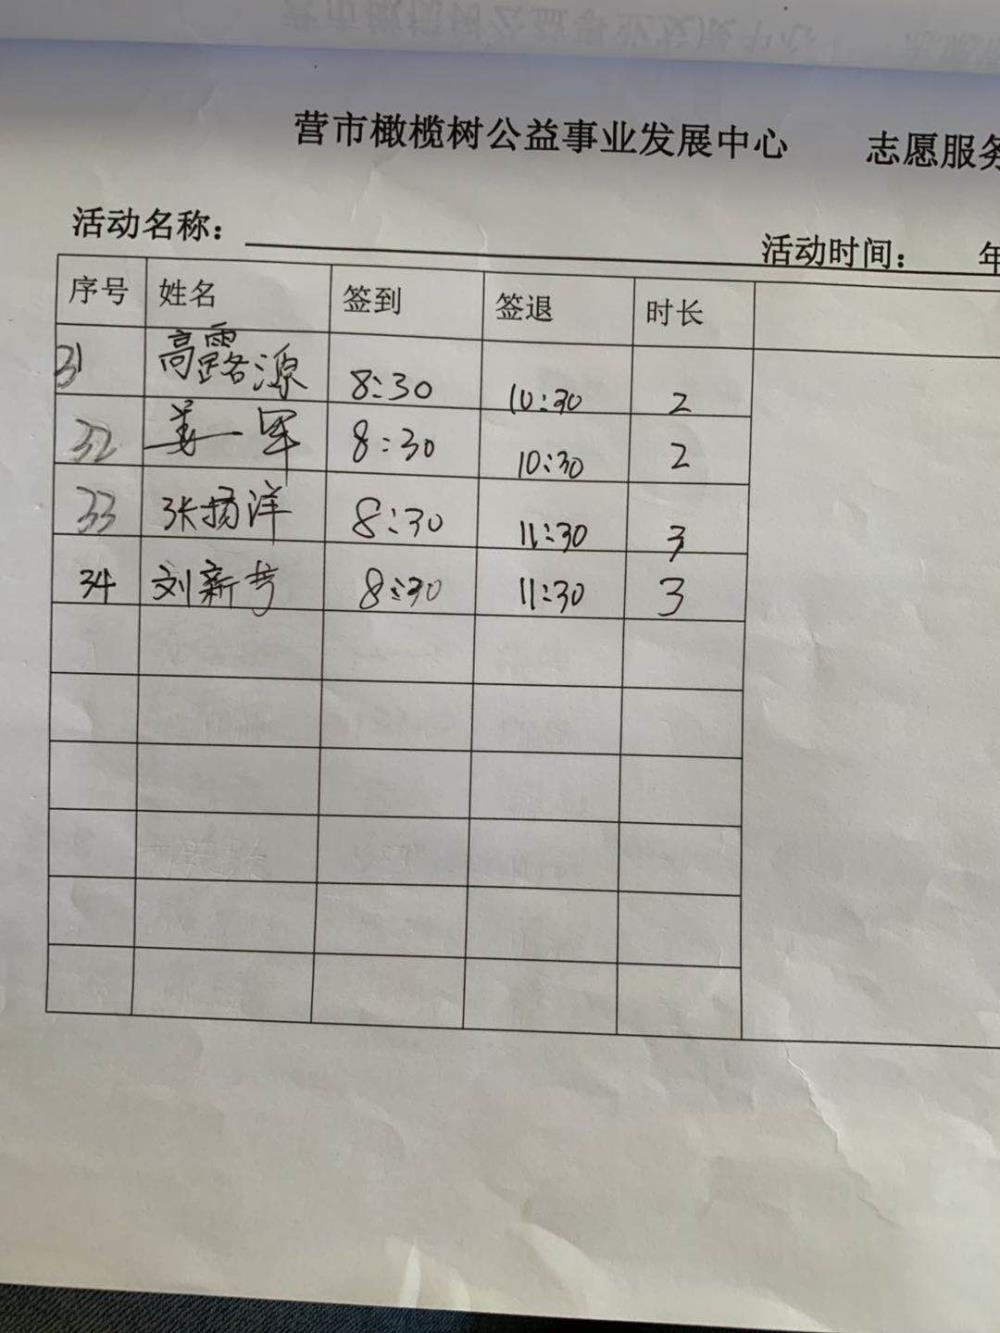 营市橄榄树公益事业发展中心 志愿服务
活动名称： 活动时间： 年
序号 姓名 签到 签退 时长
31 高露源 8:30 10:30 2
32 姜一军 8:30 10:30 2
33 张扬洋 8:30 11:30 3
34 刘新 8:30 11:30 3